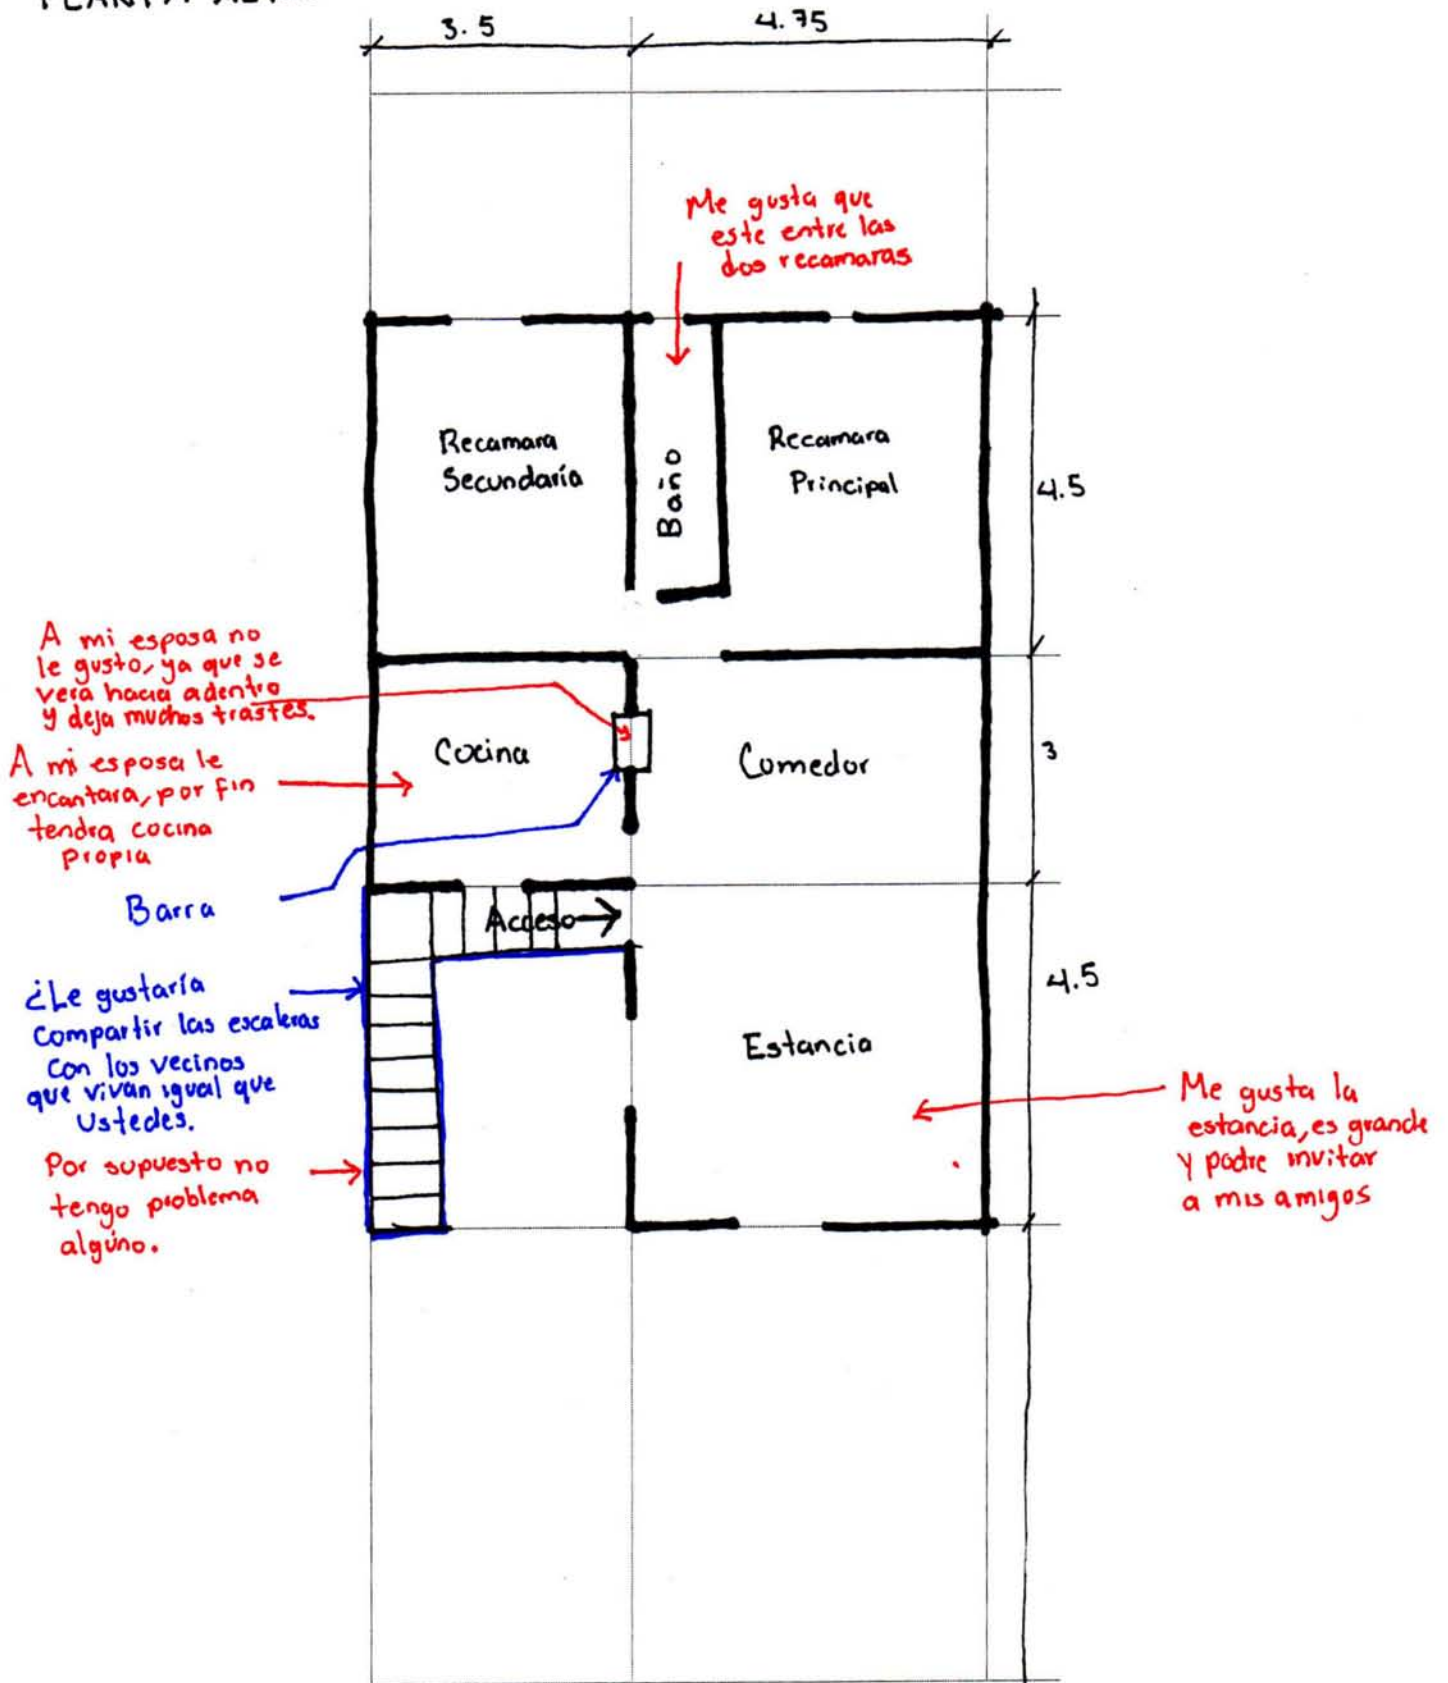 PLANTA
3.5
4.75
Me gusta que
este entre las
dos recamaras
Recamara
Secundaría
Baño
Recamara
Principal
4.5
A mi esposa no
le gusto, ya que se
vera hacia adentro
y deja muchos trastes.
Cocina
Comedor
3
A mi esposa le
encantara, por fin
tendra cocina
propia
Barra
Acceso
¿Le gustaría
compartir las escaleras
con los vecinos
que vivan igual que
Ustedes.
4.5
Estancia
Por supuesto no
tengo problema
algúno.
Me gusta la
estancia, es grande
y podre invitar
a mis amigos